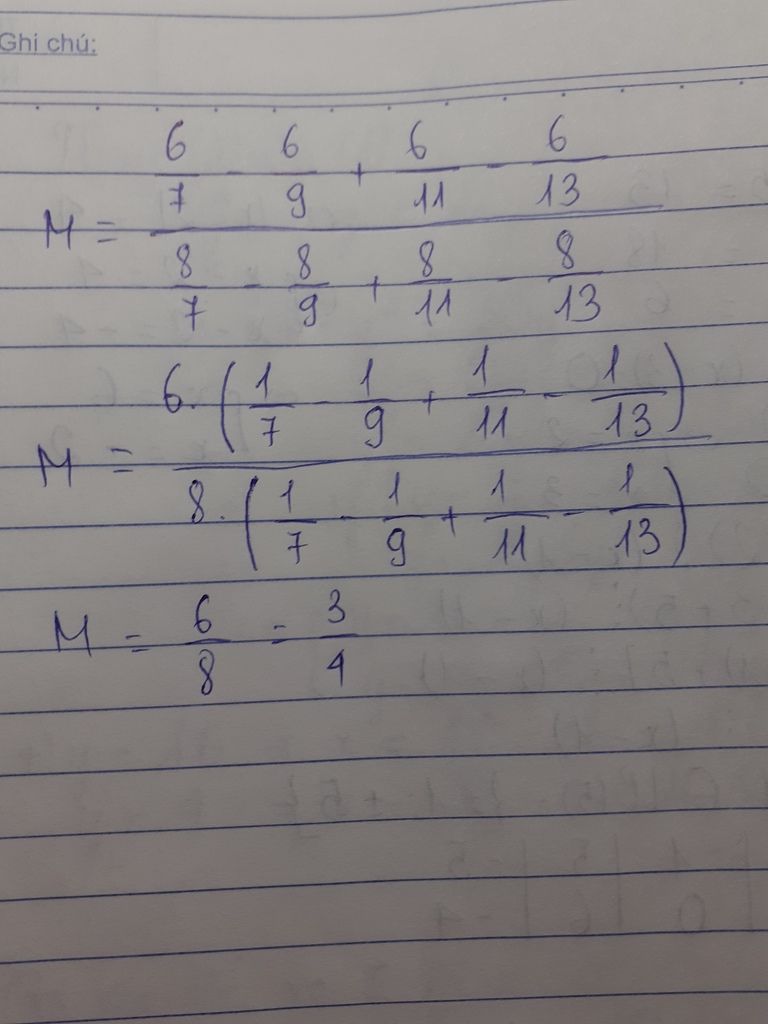 Ghi chú:
M = (6/7 - 6/9 + 6/11 - 6/13) / (8/7 - 8/9 + 8/11 - 8/13)
M = 6.(1/7 - 1/9 + 1/11 - 1/13) / 8.(1/7 - 1/9 + 1/11 - 1/13)
M = 6/8 = 3/4